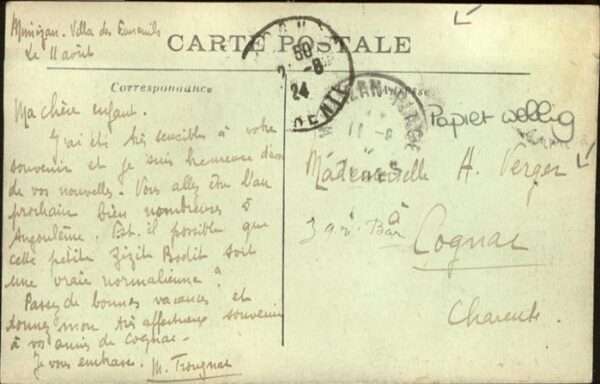 Mimizan. Villa des
Le 11 août
CARTE POSTALE
Correspondance
Adresse
50
-8
24
MIMIZAN-PLAGE
11-8
Papier wellig
Ma chère enfant.
J'ai été très sensible à votre
souvenir et je suis heureuse d'avoir
de vos nouvelles. Vous allez être l'an
prochain bien nombreuses à
Angoulême. Est-il possible que
cette petite Zizite Bodit soit
une vraie normalienne ?
Passez de bonnes vacances et
donnez mon très affectueux souvenir
à vos amies de Cognac.
Je vous embrasse. M.
Mademoiselle H. Verger
Cognac
Charente.